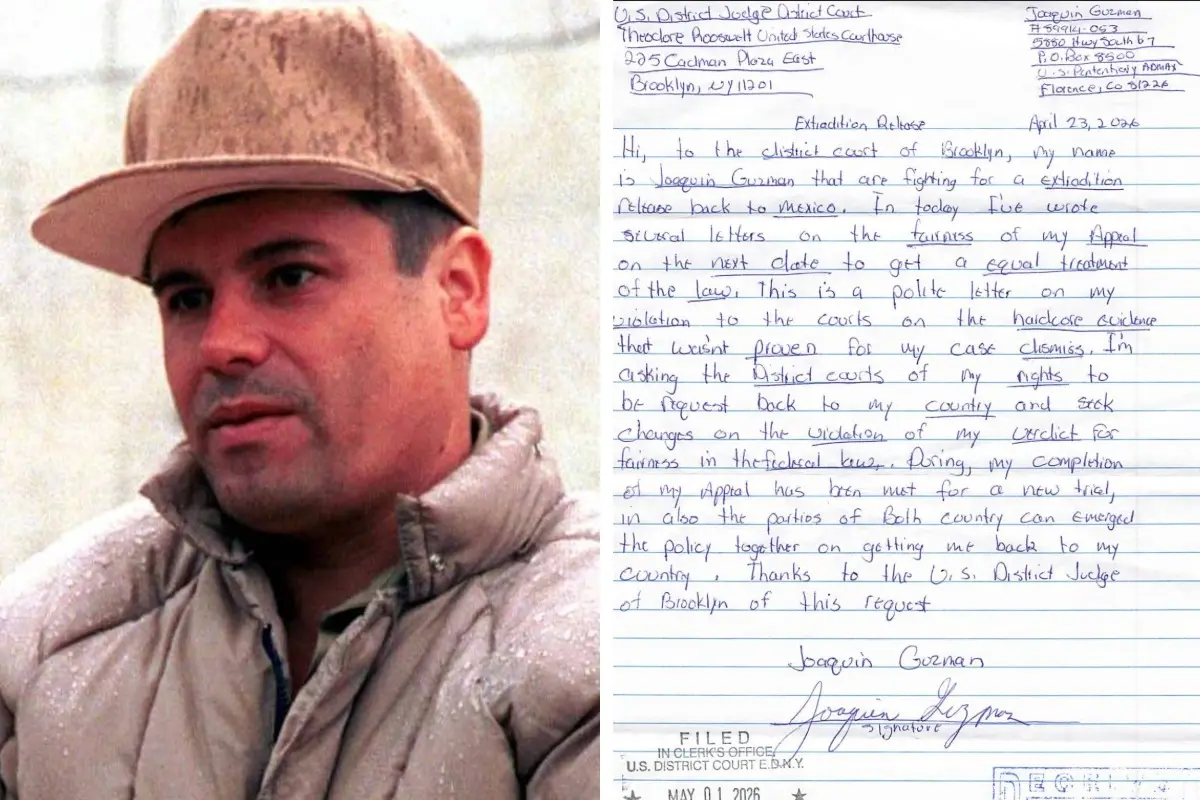 U.S. District Judge District Court
Theodore Roosevelt United States Courthouse
225 Cadman Plaza East
Brooklyn, NY 11201
Joaquin Guzman
# 89914-053
5880 Hwy South 67
P.O. Box 8500
U.S. Penitentiary ADMAX
Florence, Co 81226
Extradition Release
April 23, 2026
Hi, to the district court of Brooklyn, my name
is Joaquin Guzman that are fighting for a extradition
release back to Mexico. In today I've wrote
several letters on the fairness of my Appeal
on the next date to get a equal treatment
of the law. This is a polite letter on my
violation to the courts on the hardcore evidence
that wasn't proven for my case dismiss. I'm
asking the District courts of my rights to
be request back to my country and seek
changes on the violation of my verdict for
fairness in the federal law. During, my completion
of my Appeal has been met for a new trial,
in also the parties of Both country can emerged
the policy together on getting me back to my
country. Thanks to the U.S. District Judge
of Brooklyn of this request
Joaquin Guzman
Joaquin Guzman
Signature
FILED
IN CLERK'S OFFICE
U.S. DISTRICT COURT E.D.N.Y.
★ MAY 01 2026 ★